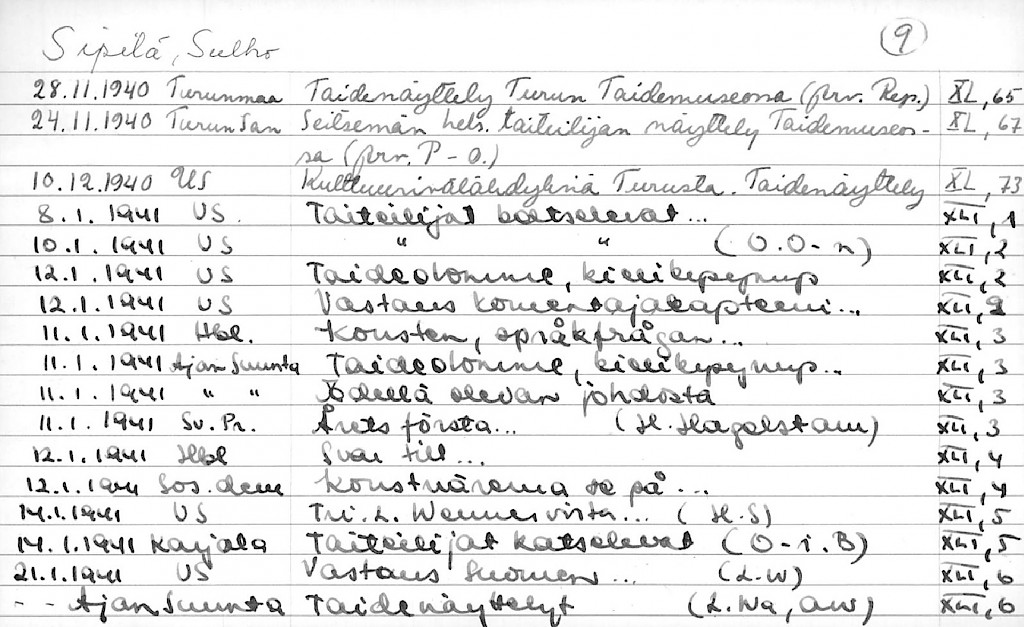 Sipilä, Sulho 9
28.11.1940 Turunmaa Taidenäyttely Turun Taidemuseossa (kirj. Rep.) XL, 65
24.11.1940 Turun San Seitsemän hels. taiteilijan näyttely Taidemuseos-
XL, 67
sa (kirj. P-o.)
10.12.1940 US Kulttuurivälähdyksiä Turusta. Taidenäyttely XL, 73
8.1.1941 US. Taiteilijat katselevat... XLI, 1
10.1.1941 US " " (O.O-n) XLI, 2
12.1.1941 US Taideolomme, kielikysymys XLI, 2
12.1.1941 US Vastaus komentajakapteeni... XLI, 2
11.1.1941 Hbl. Konsten, språkfrågan... XLI, 3
11.1.1941 Ajan Suunta Taideolomme, kielikysymys... XLI, 3
11.1.1941 " " Edellä olevan johdosta XLI, 3
11.1.1941 Sv.Pr. Årets första... (H. Hagelstam) XLI, 3
12.1.1941 Hbl Svar till... XLI, 4
12.1.1941 Sos.dem Konstnärerna se på... XLI, 4
14.1.1941 US Tri. L. Wennervirta... (H.S) XLI, 5
14.1.1941 Karjala Taiteilijat katselevat (O-i.B) XLI, 5
21.1.1941 US Vastaus Suomen... (L.W) XLI, 6
- - Ajan Suunta Taidenäyttelyt (L.Wa, AW) XLI, 6